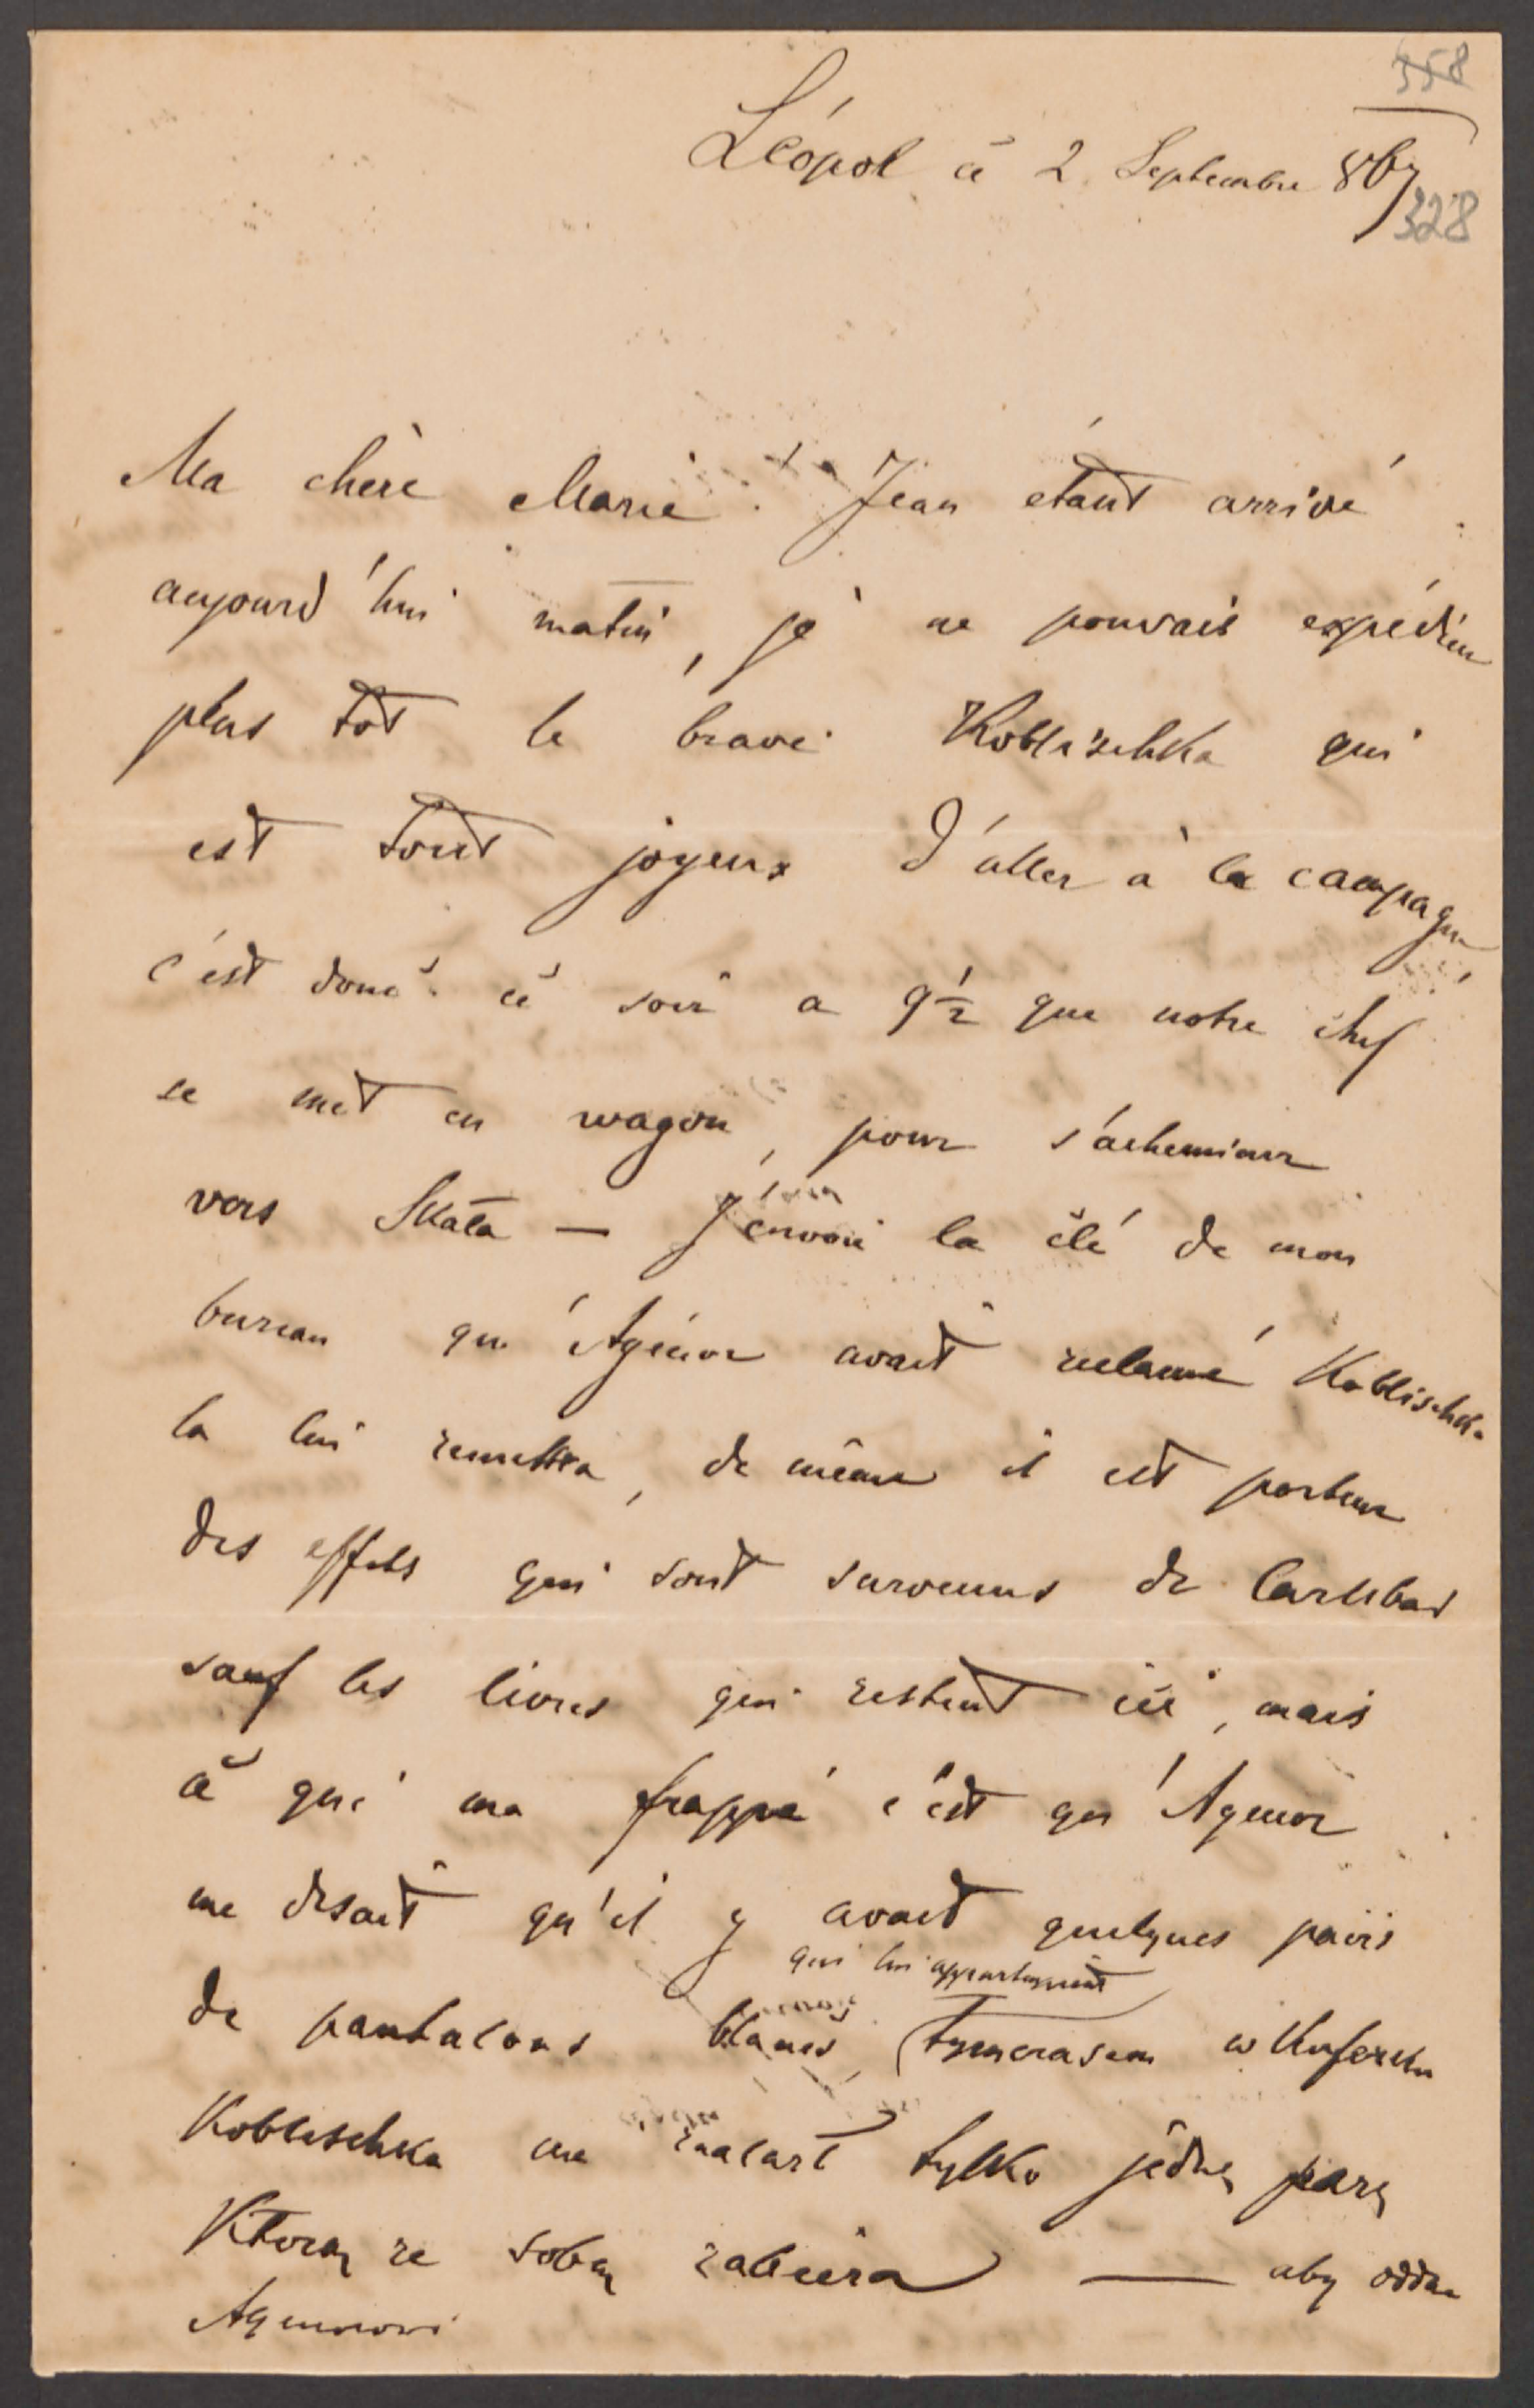 358
Léopol ce 2 Septembre 867
328
Ma chère Marie. Jean étant arrivé
aujourd'hui matin, je ne pouvais expédier
plus tôt le brave Koblischka qui
est tout joyeux d'aller à la campagne
c'est donc ce soir a 9½ que notre chef
se met en wagon, pour s'acheminer
vers Skała — J'envoie la clé de mon
bureau qu'Agénor avait reclamé Koblischka
la lui remettra, de même il est porteur
des effets qui sont survenus de Carlsbad
sauf les livres qui restent ici, mais
ce qui ma frappé c'est qu'Agenor
me disait qu'il y avait quelques pairs
qui lui appartenait
de pantalons blancs, tymczasem w kuferku
Koblischka na tylko jedną parę
Którą ze sobą zabiera — aby oddać
Agenorowi